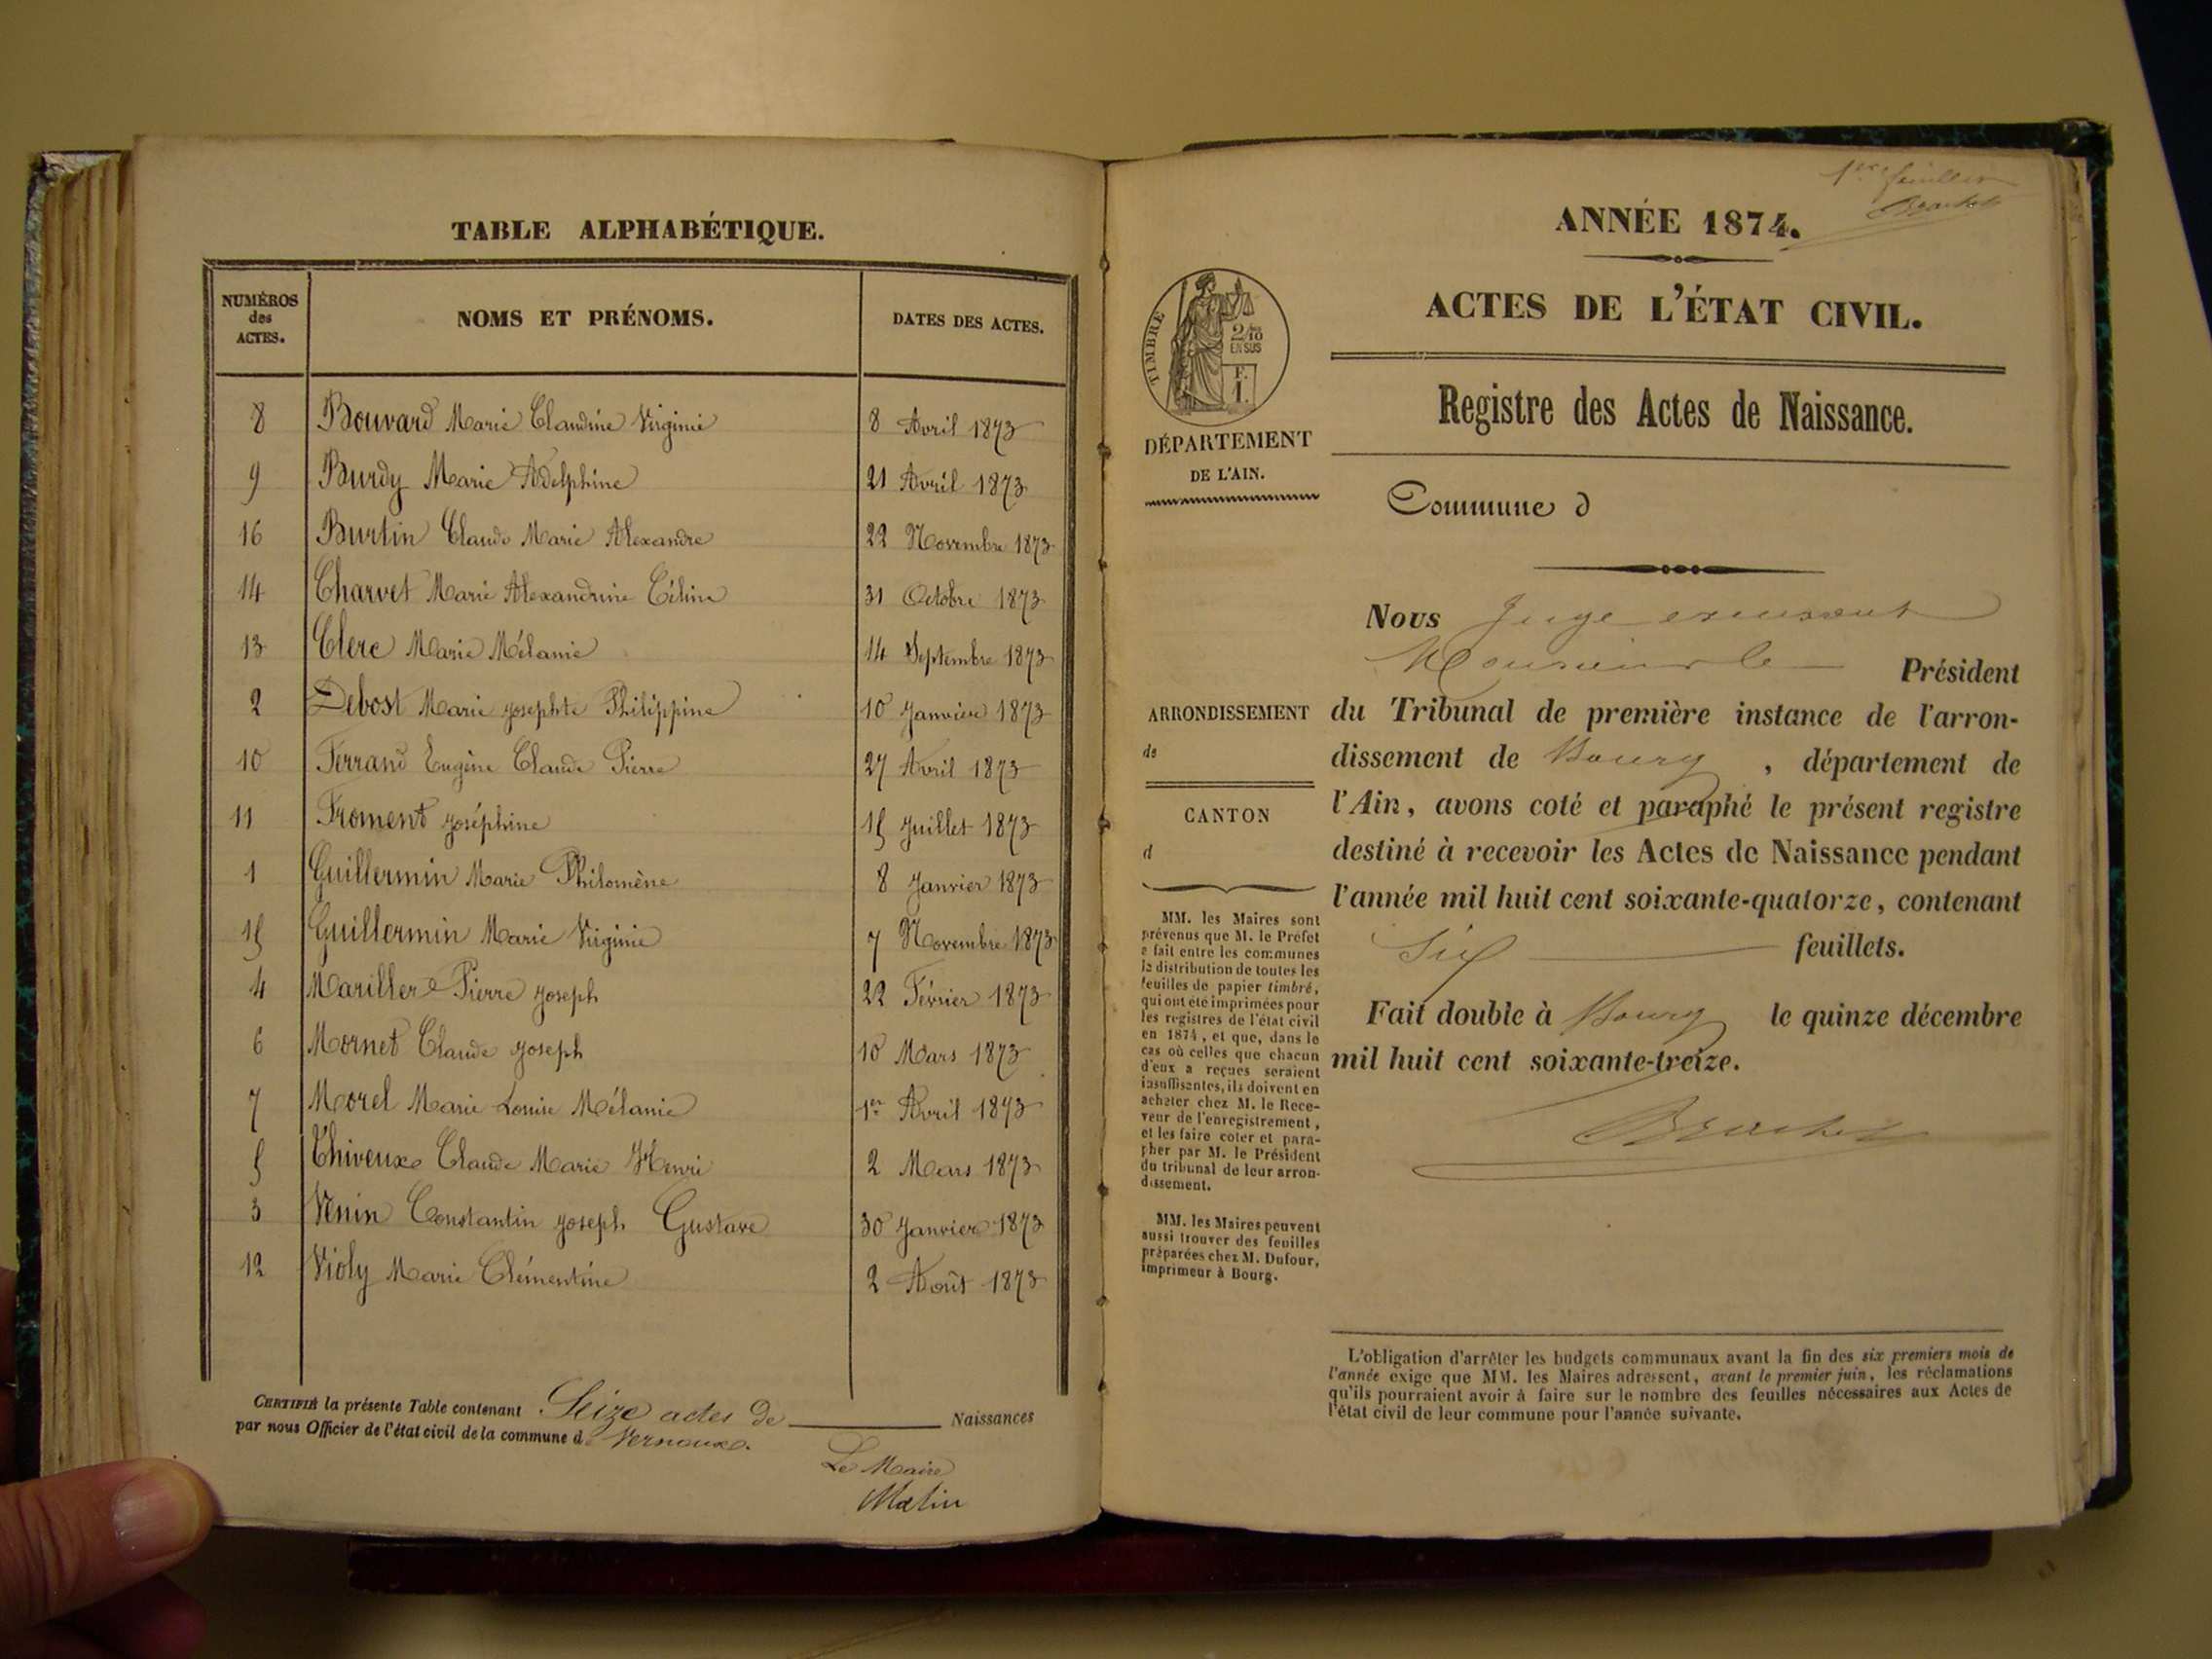 TABLE ALPHABÉTIQUE.
NUMÉROS des ACTES. NOMS ET PRÉNOMS. DATES DES ACTES.
8 Bouvard Marie Claudine Virginie 8 Avril 1873
9 Burdy Marie Adelphine 21 Avril 1873
16 Burtin Claude Marie Alexandre 22 Novembre 1873
14 Charvet Marie Alexandrine Céline 31 Octobre 1873
13 Clerc Marie Mélanie 14 Septembre 1873
2 Debost Marie Josephte Philippine 10 Janvier 1873
10 Ferrand Eugène Claude Pierre 27 Avril 1873
11 Froment Joséphine 15 Juillet 1873
1 Guillermin Marie Philomène 8 Janvier 1873
15 Guillermin Marie Virginie 7 Novembre 1873
4 Mariller Pierre Joseph 22 Février 1873
6 Mornet Claude Joseph 10 Mars 1873
7 Morel Marie Louise Mélanie 1er Avril 1873
5 Thiveux Claude Marie Henri 2 Mars 1873
3 Venin Constantin Joseph Gustave 30 Janvier 1873
12 Violy Marie Clémentine 2 Août 1873
CERTIFIÉ la présente Table contenant Seize actes de Naissances
par nous Officier de l'état civil de la commune de Vernoux.
Le Maire
1er feuillet
ANNÉE 1874.
ACTES DE L'ÉTAT CIVIL.
Registre des Actes de Naissance.
TIMBRE
2/10
EN SUS
F.
1.
DÉPARTEMENT
DE L'AIN.
Commune d
ARRONDISSEMENT
de
CANTON
d
MM. les Maires sont
prévenus que M. le Préfet
a fait entre les communes
la distribution de toutes les
feuilles de papier timbré,
qui ont été imprimées pour
les registres de l'état civil
en 1874, et que, dans le
cas où celles que chacun
d'eux a reçues seraient
insuffisantes, ils doivent en
acheter chez M. le Rece-
veur de l'enregistrement,
et les faire coter et para-
pher par M. le Président
du tribunal de leur arron-
dissement.
MM. les Maires peuvent
aussi trouver des feuilles
préparées chez M. Dufour,
imprimeur à Bourg.
Nous Juge
Monsieur le Président
du Tribunal de première instance de l'arron-
dissement de Bourg, département de
l'Ain, avons coté et paraphé le présent registre
destiné à recevoir les Actes de Naissance pendant
l'année mil huit cent soixante-quatorze, contenant
Six feuillets.
Fait double à Bourg le quinze décembre
mil huit cent soixante-treize.
L'obligation d'arrêter les budgets communaux avant la fin des six premiers mois de
l'année exige que MM. les Maires adressent, avant le premier juin, les réclamations
qu'ils pourraient avoir à faire sur le nombre des feuilles nécessaires aux Actes de
l'état civil de leur commune pour l'année suivante.